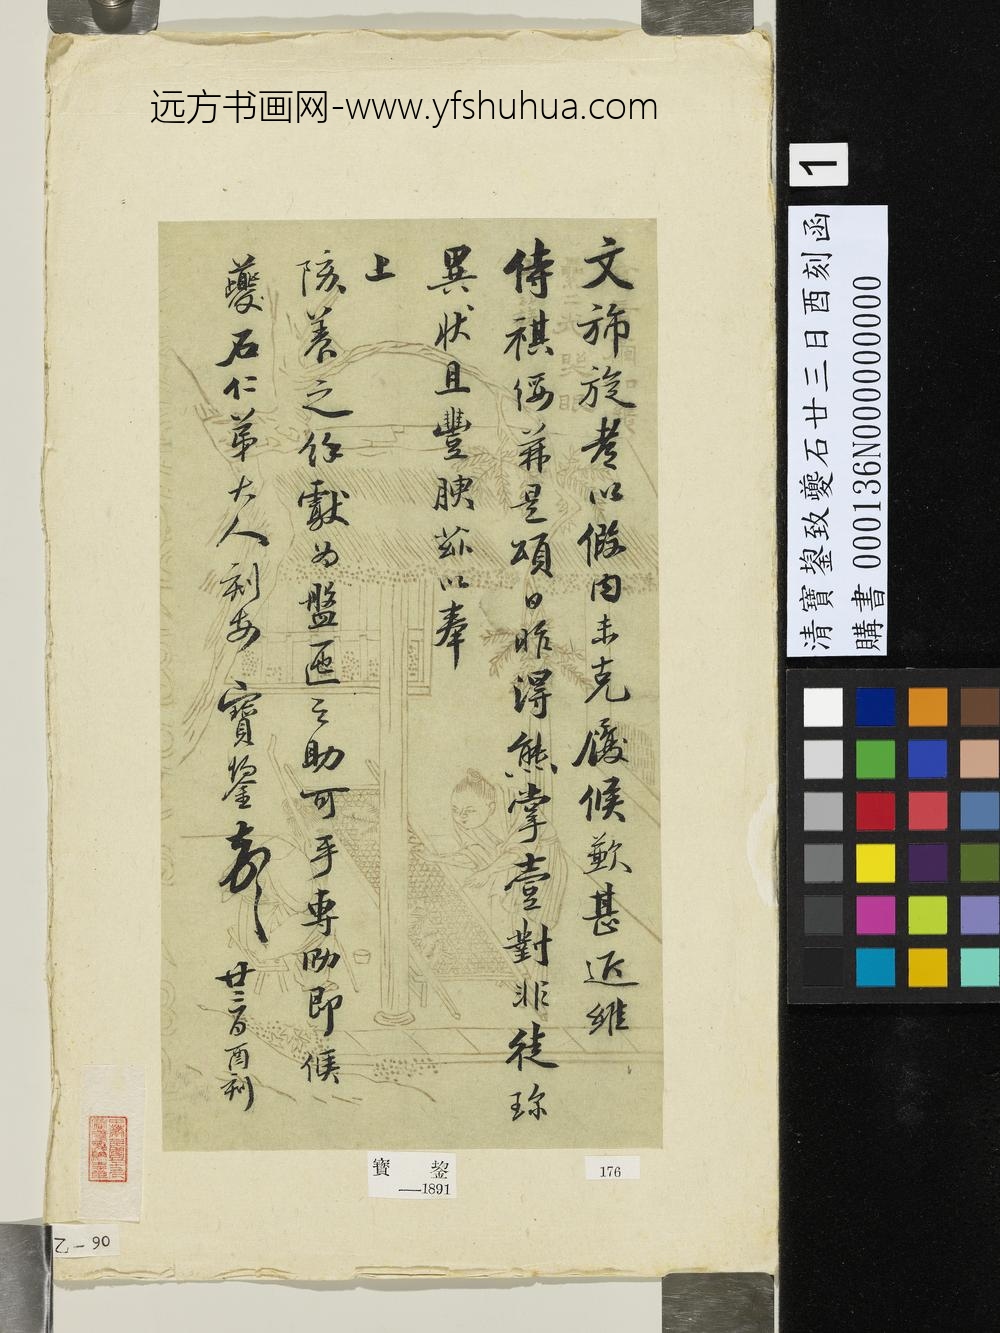 远方书画网-www.yfshuhua.com
文斾旋耊以假内未克展候歉甚近維
侍祺綏茀是頌日昨得熊掌壹對非徒珍
異状且豐腴茲以奉
上
陔養之余獻为盤匜之助可乎專泐即候
夔石仁弟大人刻安 寶鋆 廿三日酉刻
寶 鋆
—1891
176
乙-90
1
清寶鋆致夔石廿三日酉刻函
購書 000136N000000000